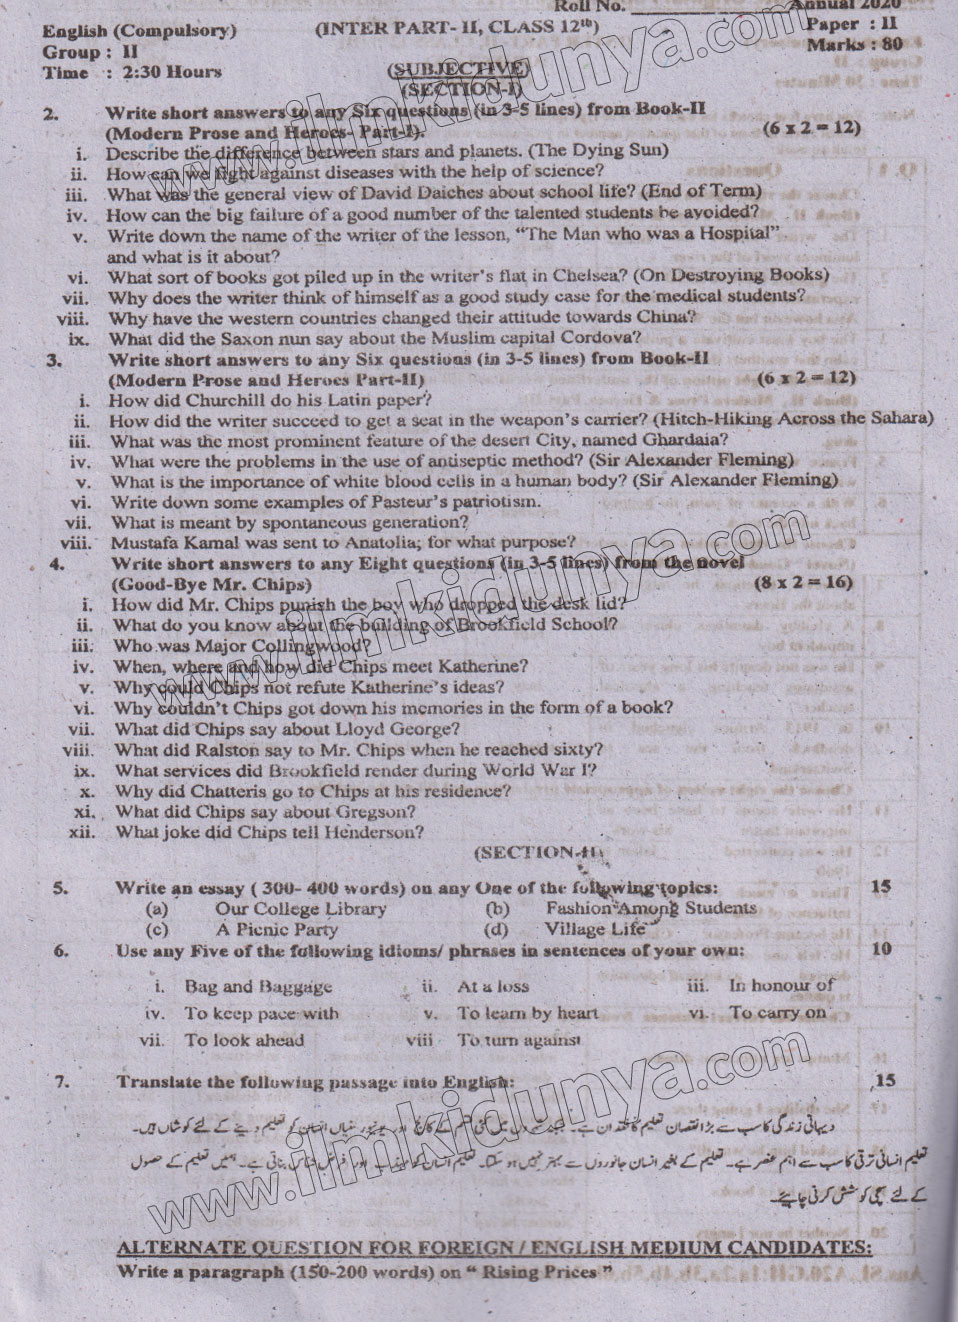 Roll No. Annual 2020
English (Compulsory) (INTER PART- II, CLASS 12th) Paper : II
Group : II Marks : 80
Time : 2:30 Hours (SUBJECTIVE)
(SECTION-I)
2. Write short answers to any Six questions (in 3-5 lines) from Book-II
(Modern Prose and Heroes- Part-I). (6 x 2 = 12)
i. Describe the difference between stars and planets. (The Dying Sun)
ii. How can we fight against diseases with the help of science?
iii. What was the general view of David Daiches about school life? (End of Term)
iv. How can the big failure of a good number of the talented students be avoided?
v. Write down the name of the writer of the lesson, “The Man who was a Hospital”
and what is it about?
vi. What sort of books got piled up in the writer’s flat in Chelsea? (On Destroying Books)
vii. Why does the writer think of himself as a good study case for the medical students?
viii. Why have the western countries changed their attitude towards China?
ix. What did the Saxon nun say about the Muslim capital Cordova?
3. Write short answers to any Six questions (in 3-5 lines) from Book-II
(Modern Prose and Heroes Part-II) (6 x 2 = 12)
i. How did Churchill do his Latin paper?
ii. How did the writer succeed to get a seat in the weapon’s carrier? (Hitch-Hiking Across the Sahara)
iii. What was the most prominent feature of the desert City, named Ghardaia?
iv. What were the problems in the use of antiseptic method? (Sir Alexander Fleming)
v. What is the importance of white blood cells in a human body? (Sir Alexander Fleming)
vi. Write down some examples of Pasteur’s patriotism.
vii. What is meant by spontaneous generation?
viii. Mustafa Kamal was sent to Anatolia; for what purpose?
4. Write short answers to any Eight questions (in 3-5 lines) from the novel
(Good-Bye Mr. Chips) (8 x 2 = 16)
i. How did Mr. Chips punish the boy who dropped the desk lid?
ii. What do you know about the building of Brookfield School?
iii. Who was Major Collingwood?
iv. When, where and how did Chips meet Katherine?
v. Why could Chips not refute Katherine’s ideas?
vi. Why couldn’t Chips got down his memories in the form of a book?
vii. What did Chips say about Lloyd George?
viii. What did Ralston say to Mr. Chips when he reached sixty?
ix. What services did Brookfield render during World War I?
x. Why did Chatteris go to Chips at his residence?
xi. What did Chips say about Gregson?
xii. What joke did Chips tell Henderson?
(SECTION-II)
5. Write an essay ( 300- 400 words) on any One of the following topics: 15
(a) Our College Library (b) Fashion Among Students
(c) A Picnic Party (d) Village Life
6. Use any Five of the following idioms/ phrases in sentences of your own: 10
i. Bag and Baggage ii. At a loss iii. In honour of
iv. To keep pace with v. To learn by heart vi. To carry on
vii. To look ahead viii To turn against
7. Translate the following passage into English: 15
دیہاتی زندگی کا سب سے بڑا نقصان تعلیم کا فقدان ہے۔ میں کئی قسم کے کالج اور یونیورسٹیاں انسان کو تعلیم دینے کے لئے کوشاں ہیں۔
تعلیم انسانی ترقی کا سب سے اہم عنصر ہے۔ تعلیم کے بغیر انسان جانوروں سے بہتر نہیں ہو سکتا۔ تعلیم انسان کو اور فرض شناس بناتی ہے۔ ہمیں تعلیم کے حصول
کے لئے سچی کوشش کرنی چاہیئے۔
ALTERNATE QUESTION FOR FOREIGN / ENGLISH MEDIUM CANDIDATES:
Write a paragraph (150-200 words) on “ Rising Prices ”
www.ilmkidunya.com
www.ilmkidunya.com
www.ilmkidunya.com